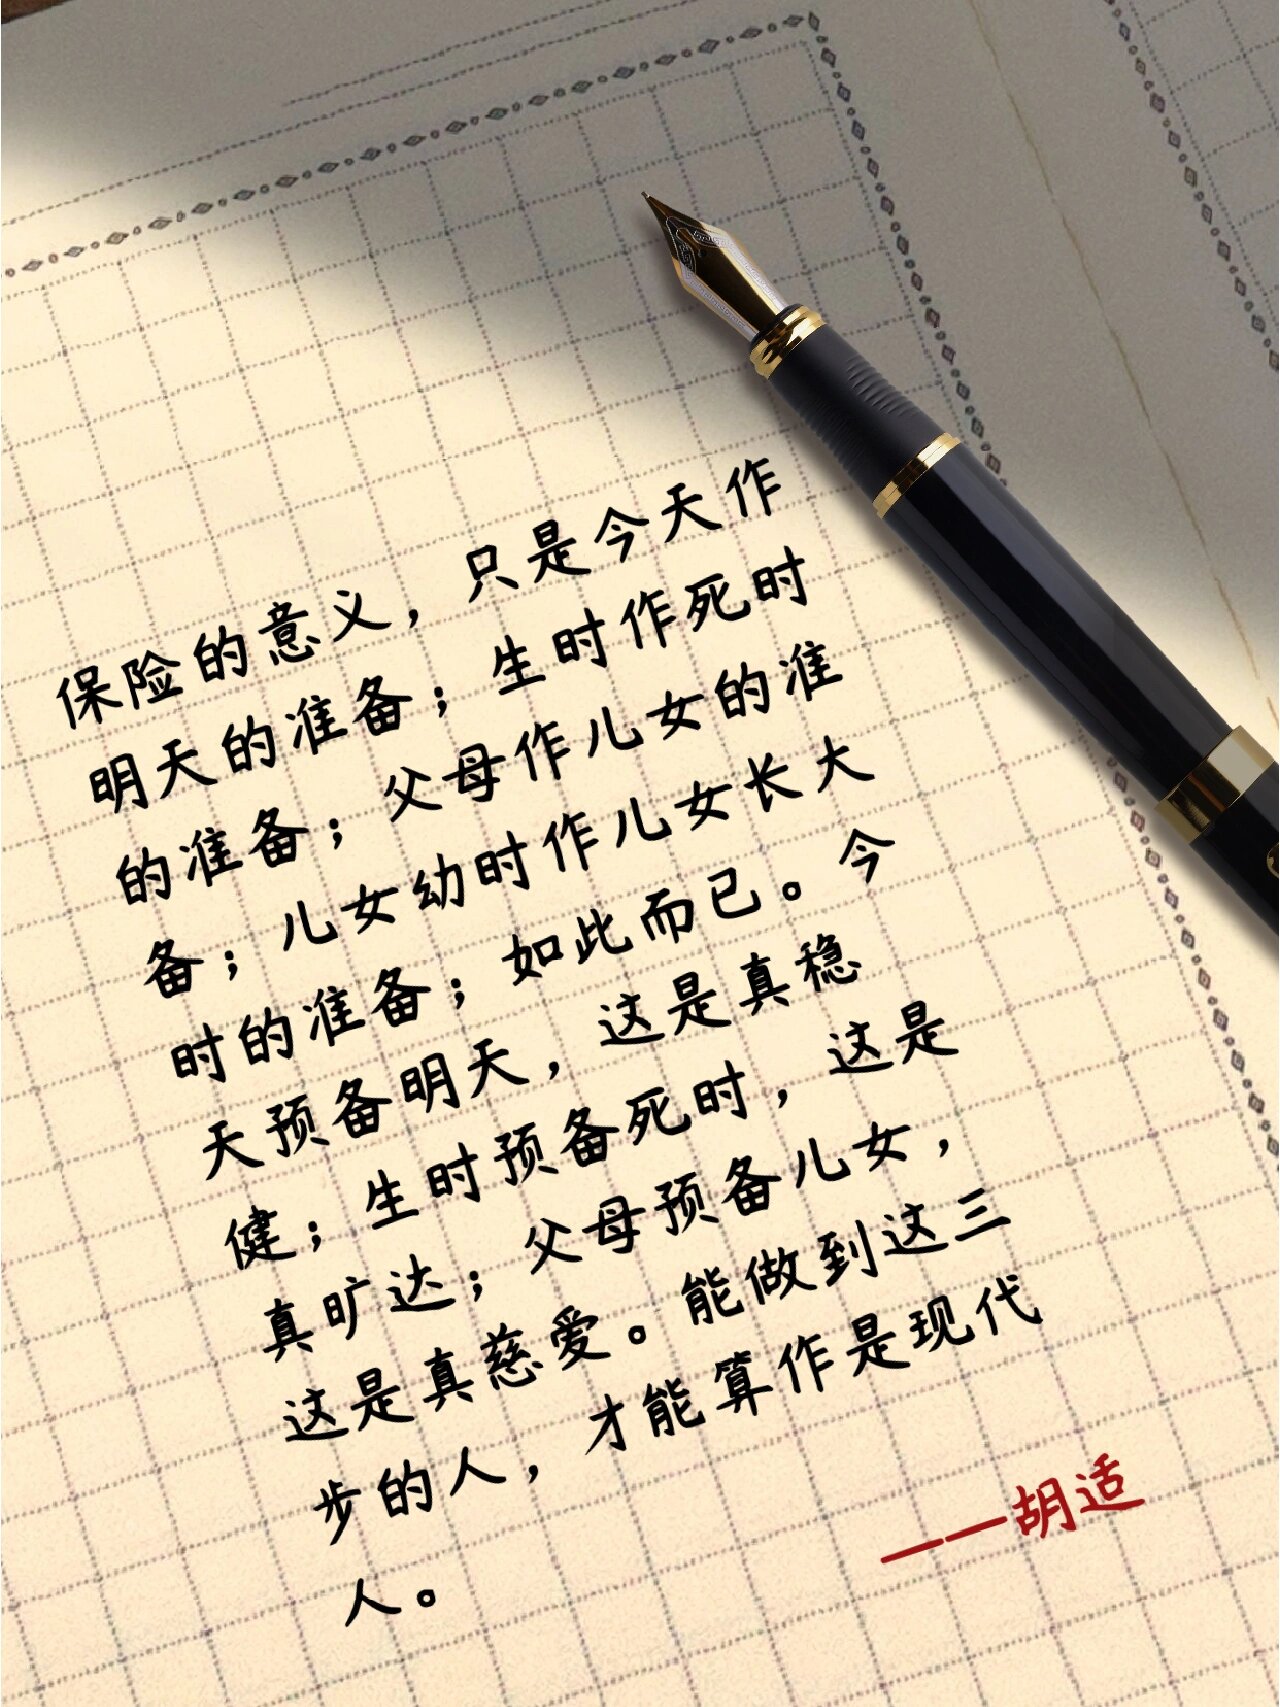 保险的意义，只是今天作
明天的准备；生时作死时
的准备；父母作儿女的准
备；儿女幼时作儿女长大
时的准备；如此而已。今
天预备明天，这是真稳
健；生时预备死时，这是
真旷达；父母预备儿女，
这是真慈爱。能做到这三
步的人，才能算作是现代
人。
——胡适